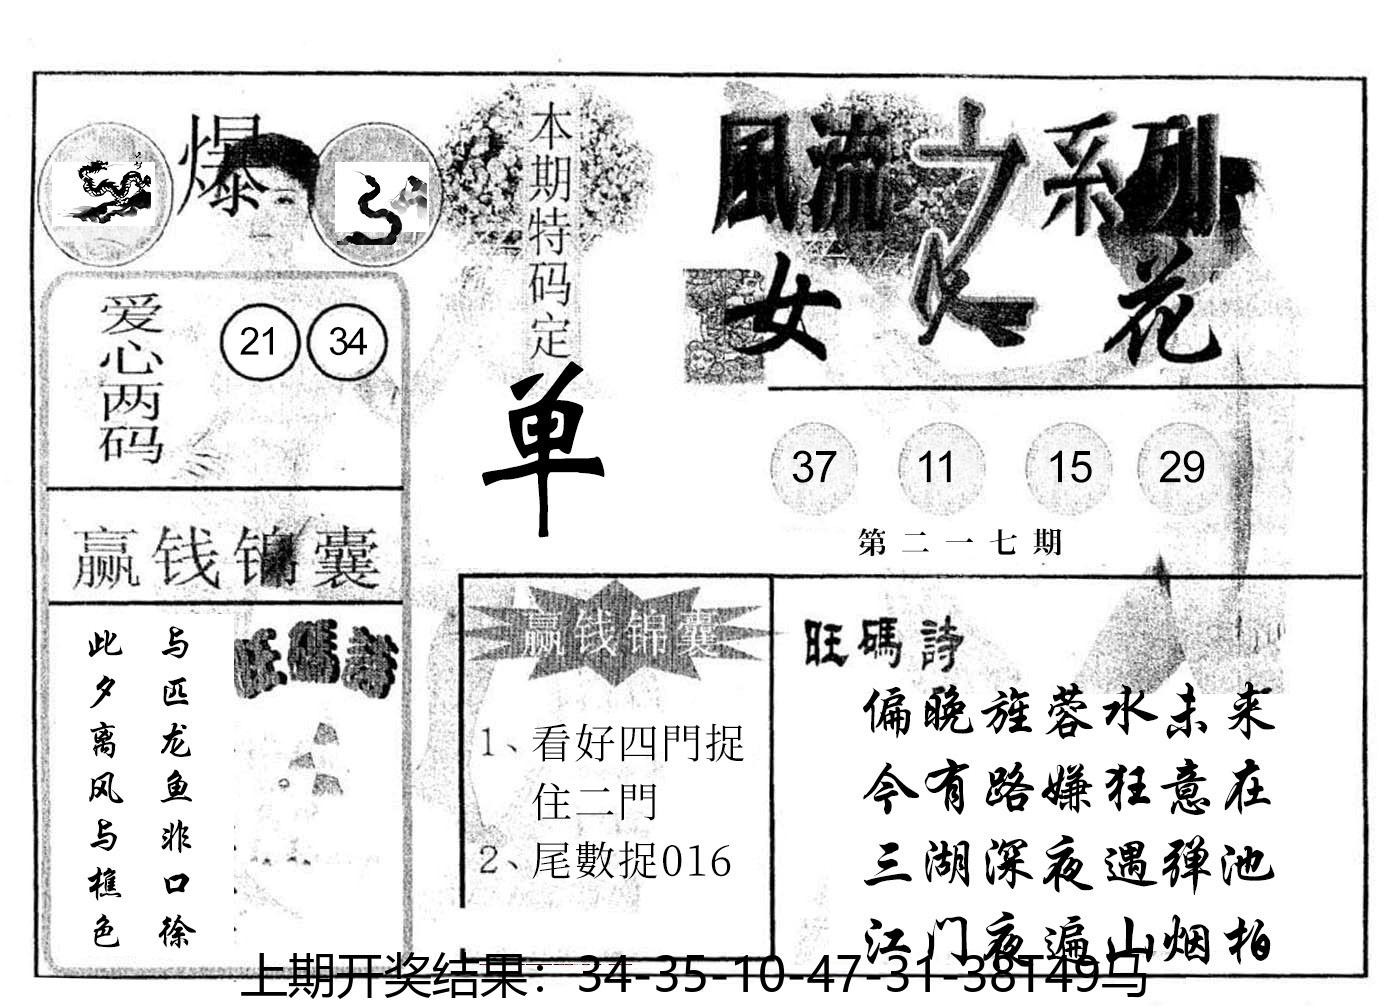 爆
本期特码定
单
風流之系列
女人花
爱心两码
21 34
37 11 15 29
第二一七期
赢钱锦囊
与匹龙鱼非口徐
此夕离风与樵色
旺碼詩
赢钱锦囊
1、看好四門捉
住二門
2、尾數捉016
旺碼詩
偏晚旌蓉水未来
今有路嫌狂意在
三湖深夜遇弹池
江门夜遍山烟柏
上期开奖结果：34-35-10-47-31-38T49马